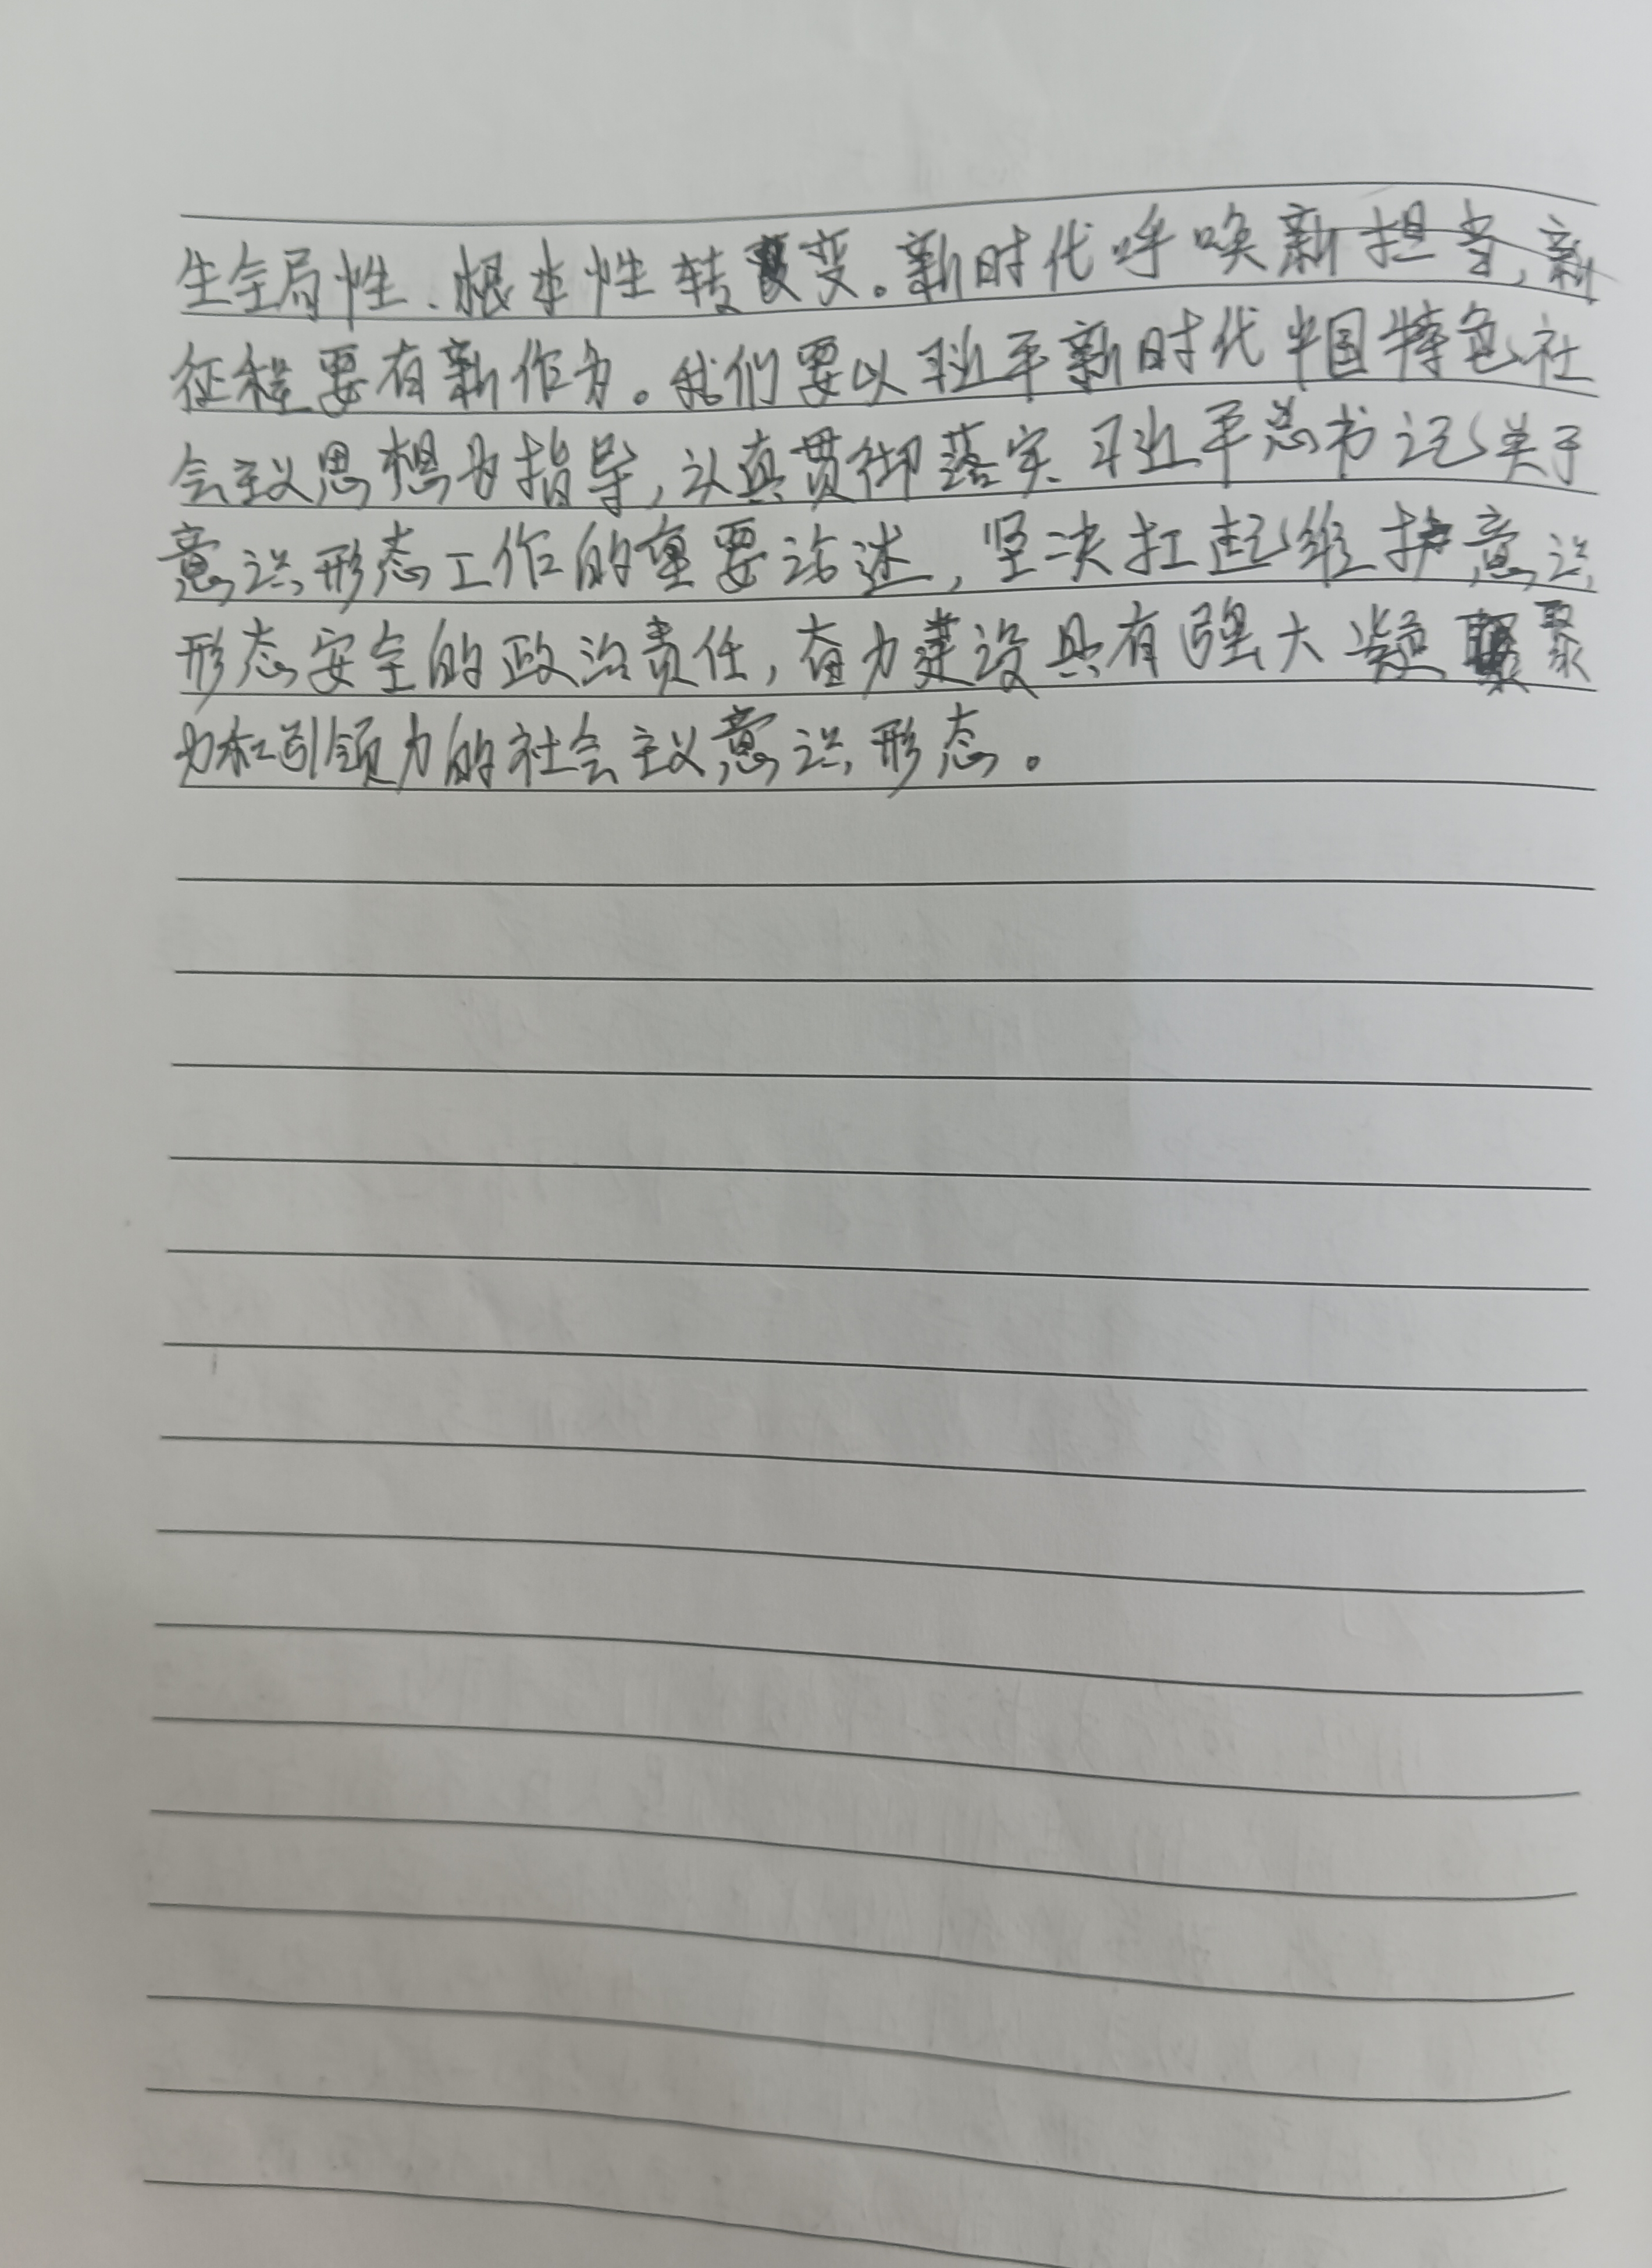 生全局性、根本性转变。新时代呼唤新担当,新
征程要有新作为。我们要以习近平新时代中国特色社
会主义思想为指导,认真贯彻落实习近平总书记关于
意识形态工作的重要论述,坚决扛起维护意识
形态安全的政治责任,奋力建设具有强大凝聚
力和引领力的社会主义意识形态。